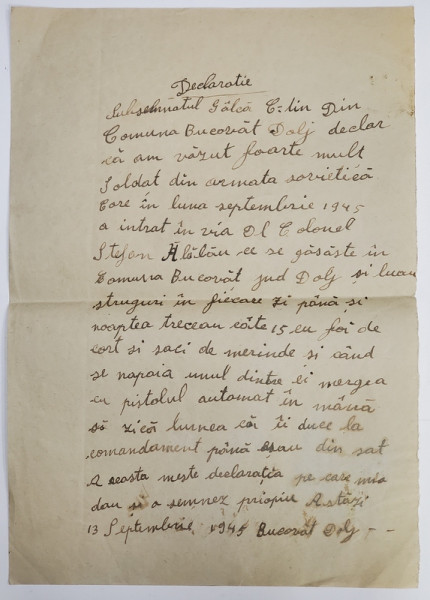 Declaratie
Subsemnatul Gâlcă C-tin Din
Comuna Bucovăt Dolj declar
că am văzut foarte mult
Soldat din armata sovietică
Care în luna septembrie 1945
a intrat în via Dl Colonel
Stefan ce se găsăste în
Comuna Bucovăt jud Dolj și luau
struguri în fiecare zi până și
noaptea treceau câte 15 cu foi de
cort si saci de merinde si când
se napoia unul dintre ei mergea
cu pistolul automat în mână
să zică lumea că îi duce la
comandament până esau din sat
Aceasta meste declarația pe care mio
dau și o semnez propiu Astăzi
13 Septembrie 1945 Bucovăt Dolj - -